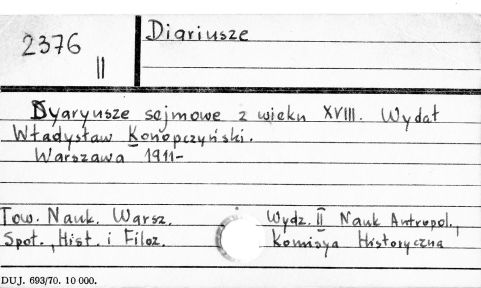 2376
II
Diariusze
Dyaryusze sejmowe z wieku XVIII. Wydał
Władysław Konopczyński.
Warszawa 1911-
Tow. Nauk. Warsz. Wydz. II Nauk Antropol.,
Społ., Hist. i Filoz. Komisya Historyczna
DUJ. 693/70. 10 000.